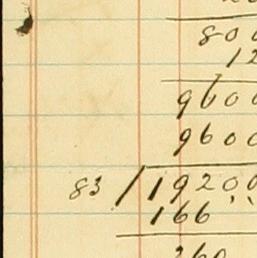 800
12
9600
9600
83 / 19200
166
260